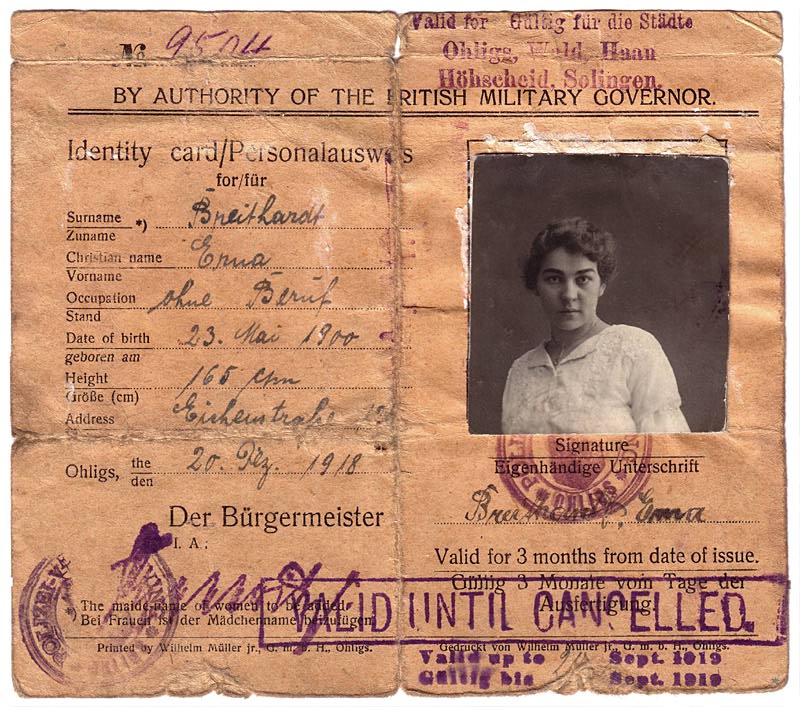 No. 9504
Valid for Gültig für die Städte
Ohligs, Wald, Haan
Höhscheid, Solingen.
BY AUTHORITY OF THE BRITISH MILITARY GOVERNOR.
Identity card/Personalausweis
for/für
Surname *) Breithardt
Zuname
Christian name Erna
Vorname
Occupation ohne Beruf
Stand
Date of birth 23. Mai 1900
geboren am
Height 165 cm
Größe (cm)
Address
Ohligs, the 20. Dez. 1918
den
Der Bürgermeister
I. A.:
The maide-name of women to be added
Bei Frauen ist der Mädchenname beizufügen
Printed by Wilhelm Müller jr., G. m. b. H., Ohligs.
Signature
Eigenhändige Unterschrift
OHLIGS
Breithardt, Erna
Valid for 3 months from date of issue.
Gültig 3 Monate vom Tage der
Ausfertigung.
VALID UNTIL CANCELLED.
Gedruckt von Wilhelm Müller jr., G. m. b. H., Ohligs.
Valid up to Sept. 1919
Gültig bis Sept. 1919